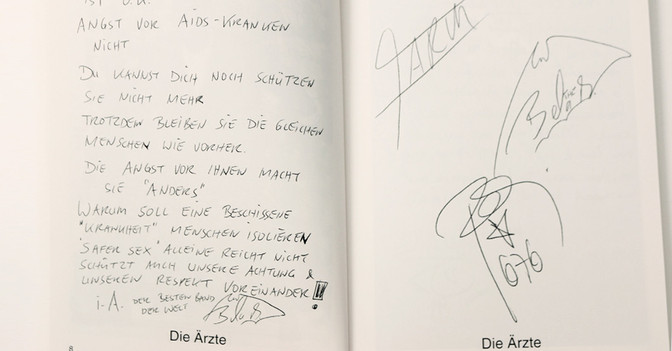 IST O.K.
ANGST VOR AIDS-KRANKEN
NICHT
DU KANNST DICH NOCH SCHÜTZEN
SIE NICHT MEHR
TROTZDEM BLEIBEN SIE DIE GLEICHEN
MENSCHEN WIE VORHER.
DIE ANGST VOR IHNEN MACHT
SIE "ANDERS"
WARUM SOLL EINE BESCHISSENE
"KRANKHEIT" MENSCHEN ISOLIEREN
"SAFER SEX" ALLEINE REICHT NICHT
SCHÜTZT AUCH UNSERE ACHTUNG &
UNSEREN RESPEKT VOREINANDER!
i.A. DER BESTEN BAND
DER WELT
Bela B.
Die Ärzte
8
FARIN
Bela B.
Die Ärzte